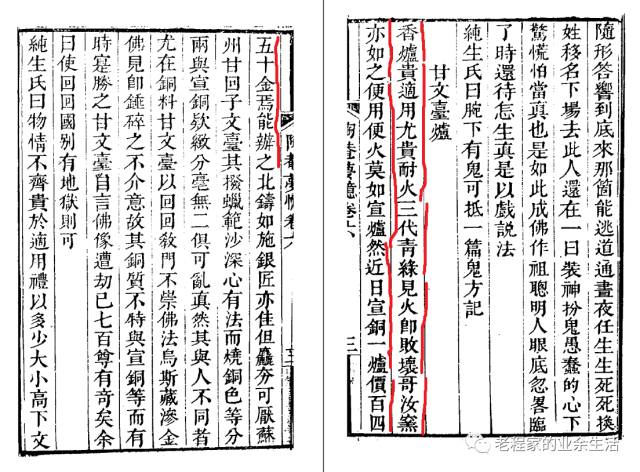 隨形答響到底來那箇能逃道通晝夜任生生死死換
姓移名下場去此人還在一日裝神扮鬼愚蠢的心下
驚慌怕當真也是如此成佛作祖聰明人眼底忽畧臨
了時還待怎生真是以戲說法
純生氏曰腕下有鬼可抵一篇鬼方記
甘文臺爐
香爐貴適用尤貴耐火三代青綠見火卽敗壞哥汝窰
亦如之便用便火莫如宣爐然近日宣銅一爐價百四
陶菴夢憶卷六 三
陶菴夢憶卷六
五十金焉能辦之北鑄如施銀匠亦佳但麤夯可厭蘇
州甘回子文臺其撥蠟範沙深心有法而燒銅色等分
兩與宣銅欵緻分毫無二俱可亂真然其與人不同者
尤在銅料甘文臺以回回敎門不崇佛法烏斯藏滲金
佛見卽錘碎之不介意故其銅質不特與宣銅等而有
時寔勝之甘文臺自言佛像遭劫已七百尊有奇矣余
曰使回回國別有地獄則可
純生氏曰物情不齊貴於適用禮以多少大小高下文
老程家的业余生活